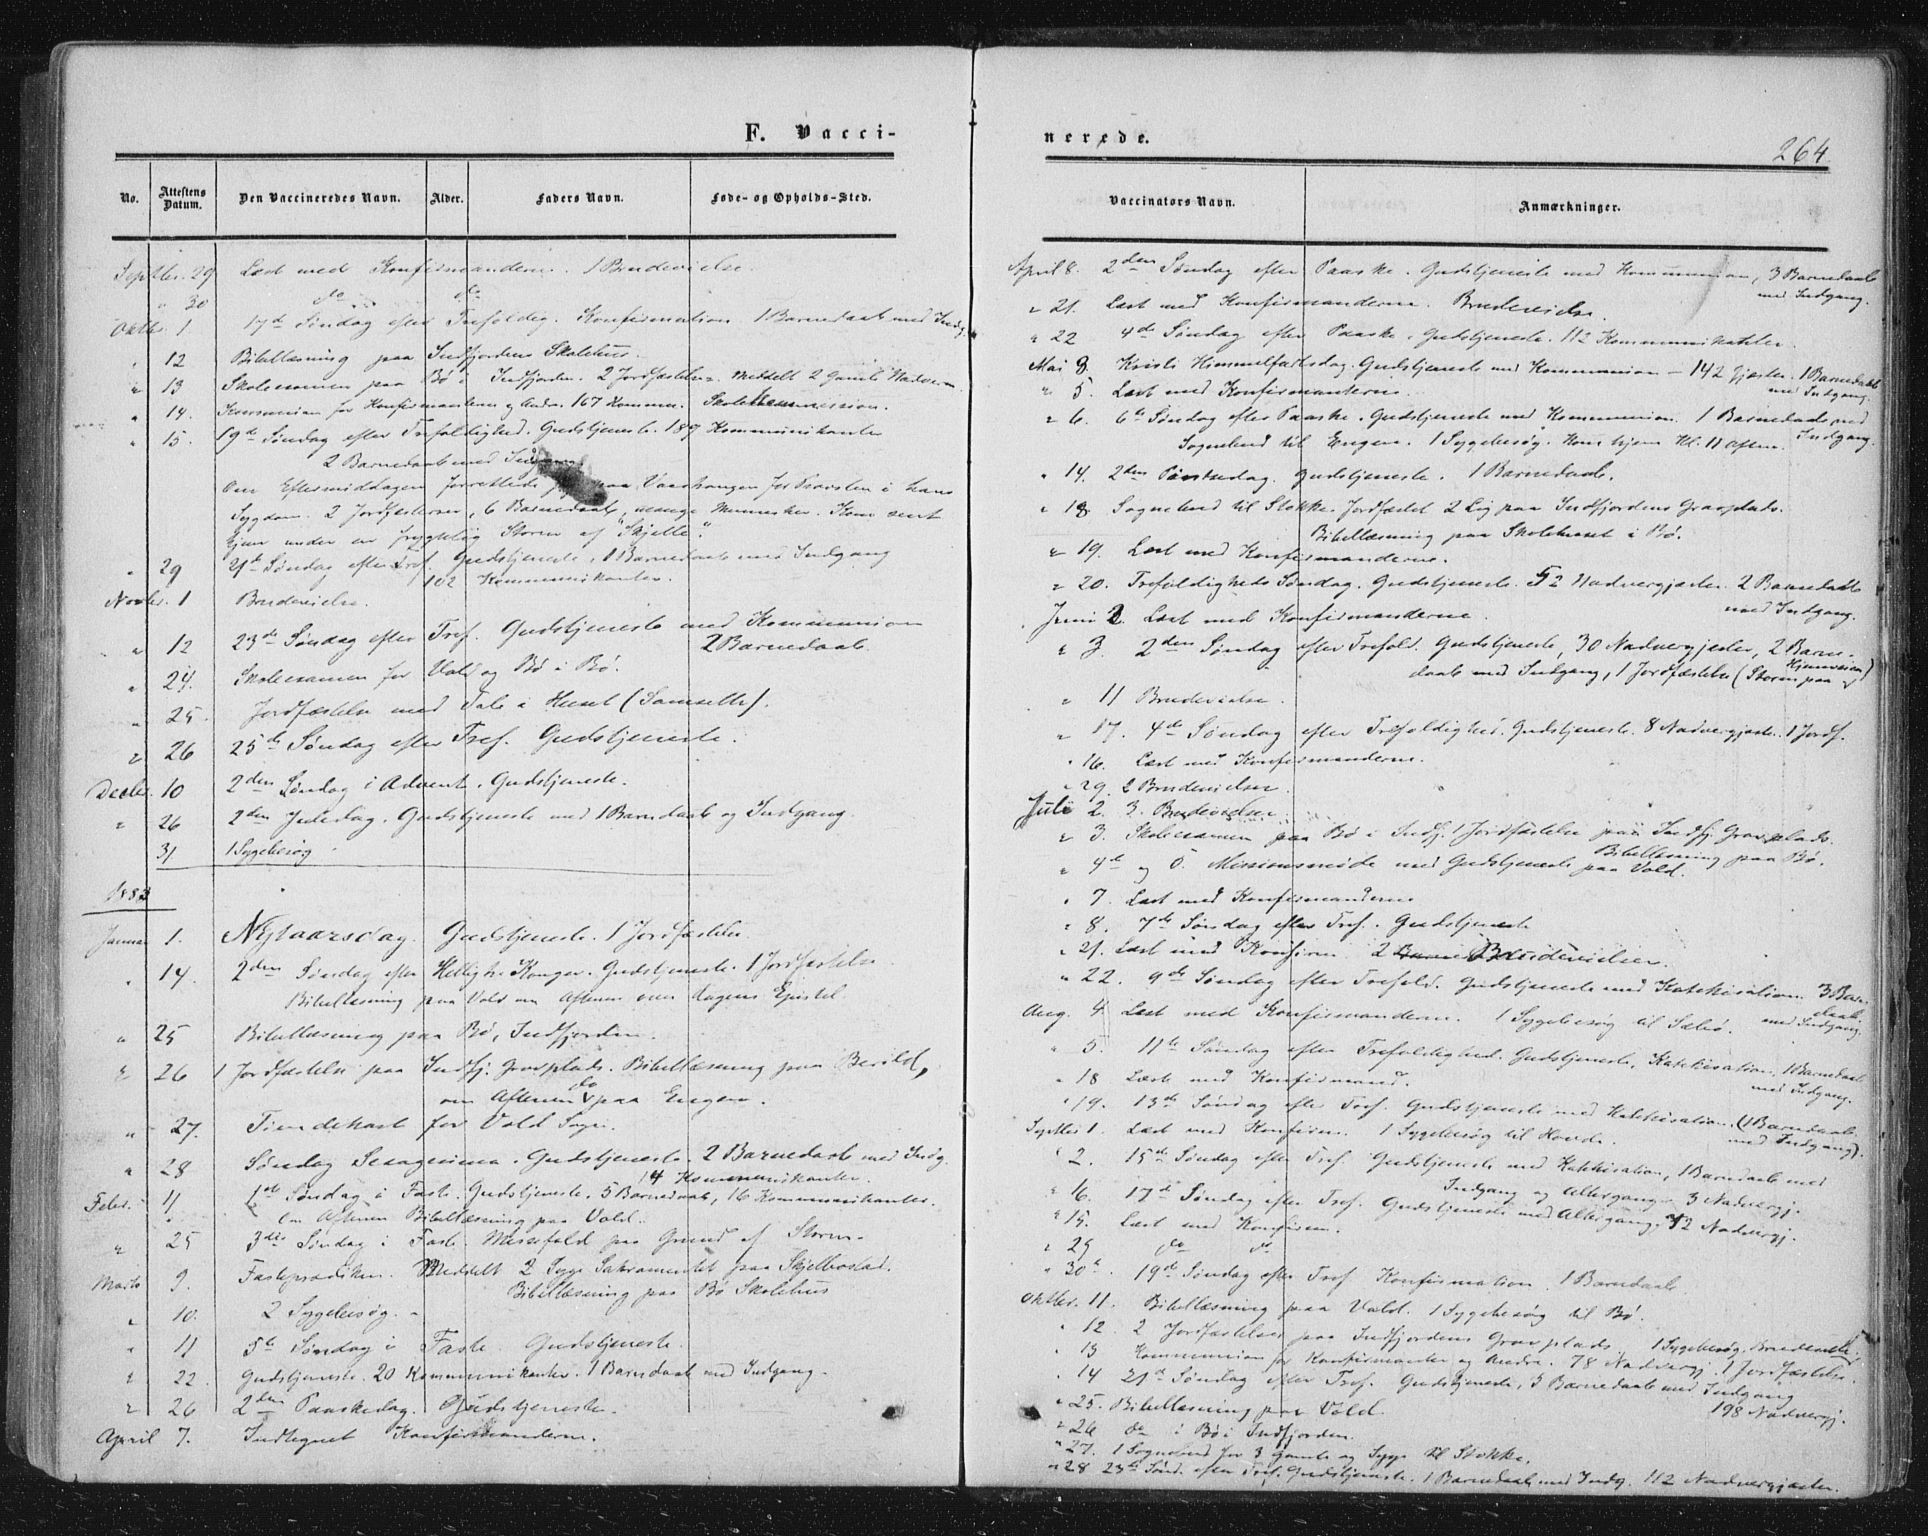 F. Vacci-
No. Attestens Datum. Den Vaccineredes Navn. Alder. Faders Navn. Føde- og Opholds-Sted.
Septbr. 29 Læst med Konfirmanderne. 1 Brudevielse.
" 30 do do
Oktbr. 1 17de Søndag efter Trefoldig. Konfirmation 1 Barnedaab med Indg
" 12 Bibellæsning paa Indfjordens Skolehus.
" 13 Skoleexamen paa Bø i Indfjorden. 2 Jordfæstelser. Meddelt 2 Gamle Nadveren
" 14. for Konfirmanterne og Andre. 167 Kommun. Skolekommission.
" 15. 19de Søndag efter Trefoldighed. Gudstjeneste. 187 Kommunikanter
2 Barnedaab med
Om Eftermiddagen forrettede paa Vaarhaugen for Provsten i hans
Sygdom. 2 Jordfæstelser, 6 Barnedaab, mange Mennesker. Kom sent
hjem under en frygtelig Storm af "Skjelte".
" 29 21de Søndag efter Tref. Gudstjeneste, 1 Barnedaab med Indgang
102 Kommunikanter.
Novbr. 1 Brudevielse.
" 12 23de Søndag efter Tref. Gudstjeneste med Kommunion
2 Barnedaab.
" 24. Skoleexamen for Vold og Bø i Bø.
" 25. Jordfæstelse med Tale i Huset
" 26 25de Søndag efter Tref. Gudstjeneste.
Decbr. 10 2den Søndag i Advent. Gudstjeneste.
" 26 2den Juledag. Gudstjeneste med 1 Barnedaab og Indgang.
31 1 Sygebesøg
1883
Januar 1. Nytaarsdag. Gudstjeneste. 1 Jordfæstelse
" 14. 2den Søndag efter Hellig tre Konger. Gudstjeneste. 1 Jordfæstelse
Bibellæsning paa Vold om Aftenen over Dagens Epistel.
" 25 Bibellæsning paa Bø, Indfjorden.
" 26 1 Jordfæstelse paa Indfj. Gravplads. Bibellæsning paa Berild,
om Aftenen do paa Engen.
" 27. Tiendekast for Vold Sogn.
" 28 Søndag Sexagesima. Gudstjeneste. 2 Barnedaab med Indg.
14 Kommunikanter.
Febr. 11 1ste Søndag i Faste. Gudstjeneste. 5 Barnedaab, 16 Kommunikanter.
Om Aftenen Bibellæsning paa Vold.
" 25 3die Søndag i Faste. Messefald paa Grund af Storm.
Marts 9. Fasteprædiken. Meddelt 2 Syge Sakramentet paa Skjelbostad.
Bibellæsning paa Bø Skolehus
" 10. 2 Sygebesøg.
" 11 5te Søndag i Faste. Gudstjeneste.
" 22. Gudstjeneste. 20 Kommunikanter. 1 Barnedaab med Indgang.
" 26 2den Paaskedag. Gudstjeneste.
April 7. Indtegnet Konfirmanderne.
nerede.
264
Vaccinators Navn. Anmærkninger.
April 8. 2den Søndag efter Paaske. Gudstjeneste med Kommunion, 3 Barnedaab
med Indgang.
" 21. Læst med Konfirmanderne. Brudevielse.
" 22 4de Søndag efter Paaske. Gudstjeneste. 112 Kommunikanter.
Mai 3. Kristi Himmelfartsdag. Gudstjeneste med Kommunion - 142 Gjæster. 1 Barnedaab
med Indgang.
" 5. Læst med Konfirmanterne.
" 6. 6te Søndag efter Paaske. Gudstjeneste med Kommunion. 1 Barnedaab med
Indgang.
Sognebud til Engen. 1 Sygebesøg. Kom hjem Kl. 11 Aften.
" 14. 2den Pintsedag. Gudstjeneste. 1 Barnedaab.
" 18. Sognebud til Stokke. Jordfæstet 2 Lig paa Indfjordens Gravplads.
Bibellæsning paa Skolehuset i Bø.
" 19. Læst med Konfirmanderne.
" 20. Trefoldigheds Søndag. Gudstjeneste. 52 Nadvergjæster. 2 Barnedaab
med Indgang.
Juni 2. Læst med Konfirmanderne.
" 3 2den Søndag efter Trefold. Gudstjeneste, 30 Nadvergjæster, 2 Barne-
daab med Indgang, 1 Jordfæstelse (Storm paa Hjemveien)
" 11 Brudevielse.
" 17. 4de Søndag efter Trefoldighed. Gudstjeneste. 8 Nadvergjæster. 1 Jordf.
" 16. Læst med Konfirmanderne.
" 29. 2 Brudevielser.
Juli 2. 3. Brudevielser.
" 3. Skoleexamen paa Bø i Indfj. 1 Jordfæstelse paa Indfj. Gravplads.
Bibellæsning paa Bø.
" 4de og 5. Missionsmøde med Gudstjeneste paa Vold.
" 7. Læst med Konfirmanderne
" 8. 7de Søndag efter Tref. Gudstjeneste
" 21. Læst med Konfirm. 2 Brudevielser.
" 22. 9de Søndag efter Trefold. Gudstjeneste med Katekisation. 3 Barne-
daab
med Indgang.
Aug. 4 Læst med Konfirmanderne. 1 Sygebesøg til Sæbø.
" 5. 11te Søndag efter Trefoldighed. Gudstjeneste, Katekisation, 1 Barnedaab
med Indgang.
" 18 Læste med Konfirmand.
" 19. 13de Søndag efter Tref. Gudstjeneste med Katekisation. (1 Barnedaab
med Indgang).
Septbr 1. Læst med Konfirm. 1 Sygebesøg til Hovde.
" 2. 15de Søndag efter Tref. Gudstjeneste med Katekisation, 1 Barnedaab med
Indgang og Altergang - 3 Nadvergj.
" 16. 17de Søndag efter Tref. Gudstjeneste med Altergang, 12 Nadvergj.
" 15. Læst med Konfirm.
" 29 do do
" 30te. 19de Søndag efter Tref. Konfirmation. 1 Barnedaab.
Oktbr. 11. Bibellæsning paa Vold. 1 Sygebesøg til Bø.
" 12. 2 Jordfæstelser paa Indfjordens Gravplads. 1 Sygebesøg. Brudevielse.
" 13 Kommunion for Konfirmanter og Andre. 78 Nadvergj. 1 Jordfæstelse.
" 14 21de Søndag efter Tref. Gudstjeneste, 3 Barnedaab med Indgang
198 Nadvergj.
" 25. Bibellæsning paa Vold.
" 26 do i Bø i Indfjorden.
" 27. 1 Sognebud for 3 Gamle og Syge til Stokke.
" 28 23de Sønd. efter Tref. Gudstjeneste. 1 Barnedaab med Indg. 112 Nadvergjæster.